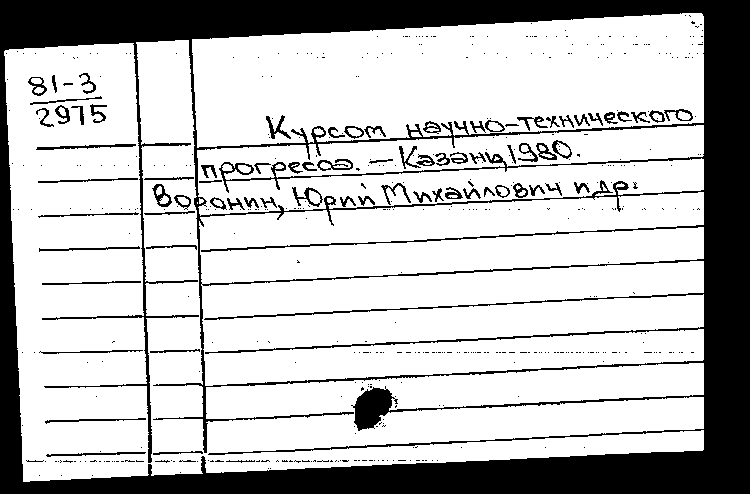 81-3
2975
Курсом научно-технического
прогресса. – Казань, 1980.
Воронин, Юрий Михайлович и др.